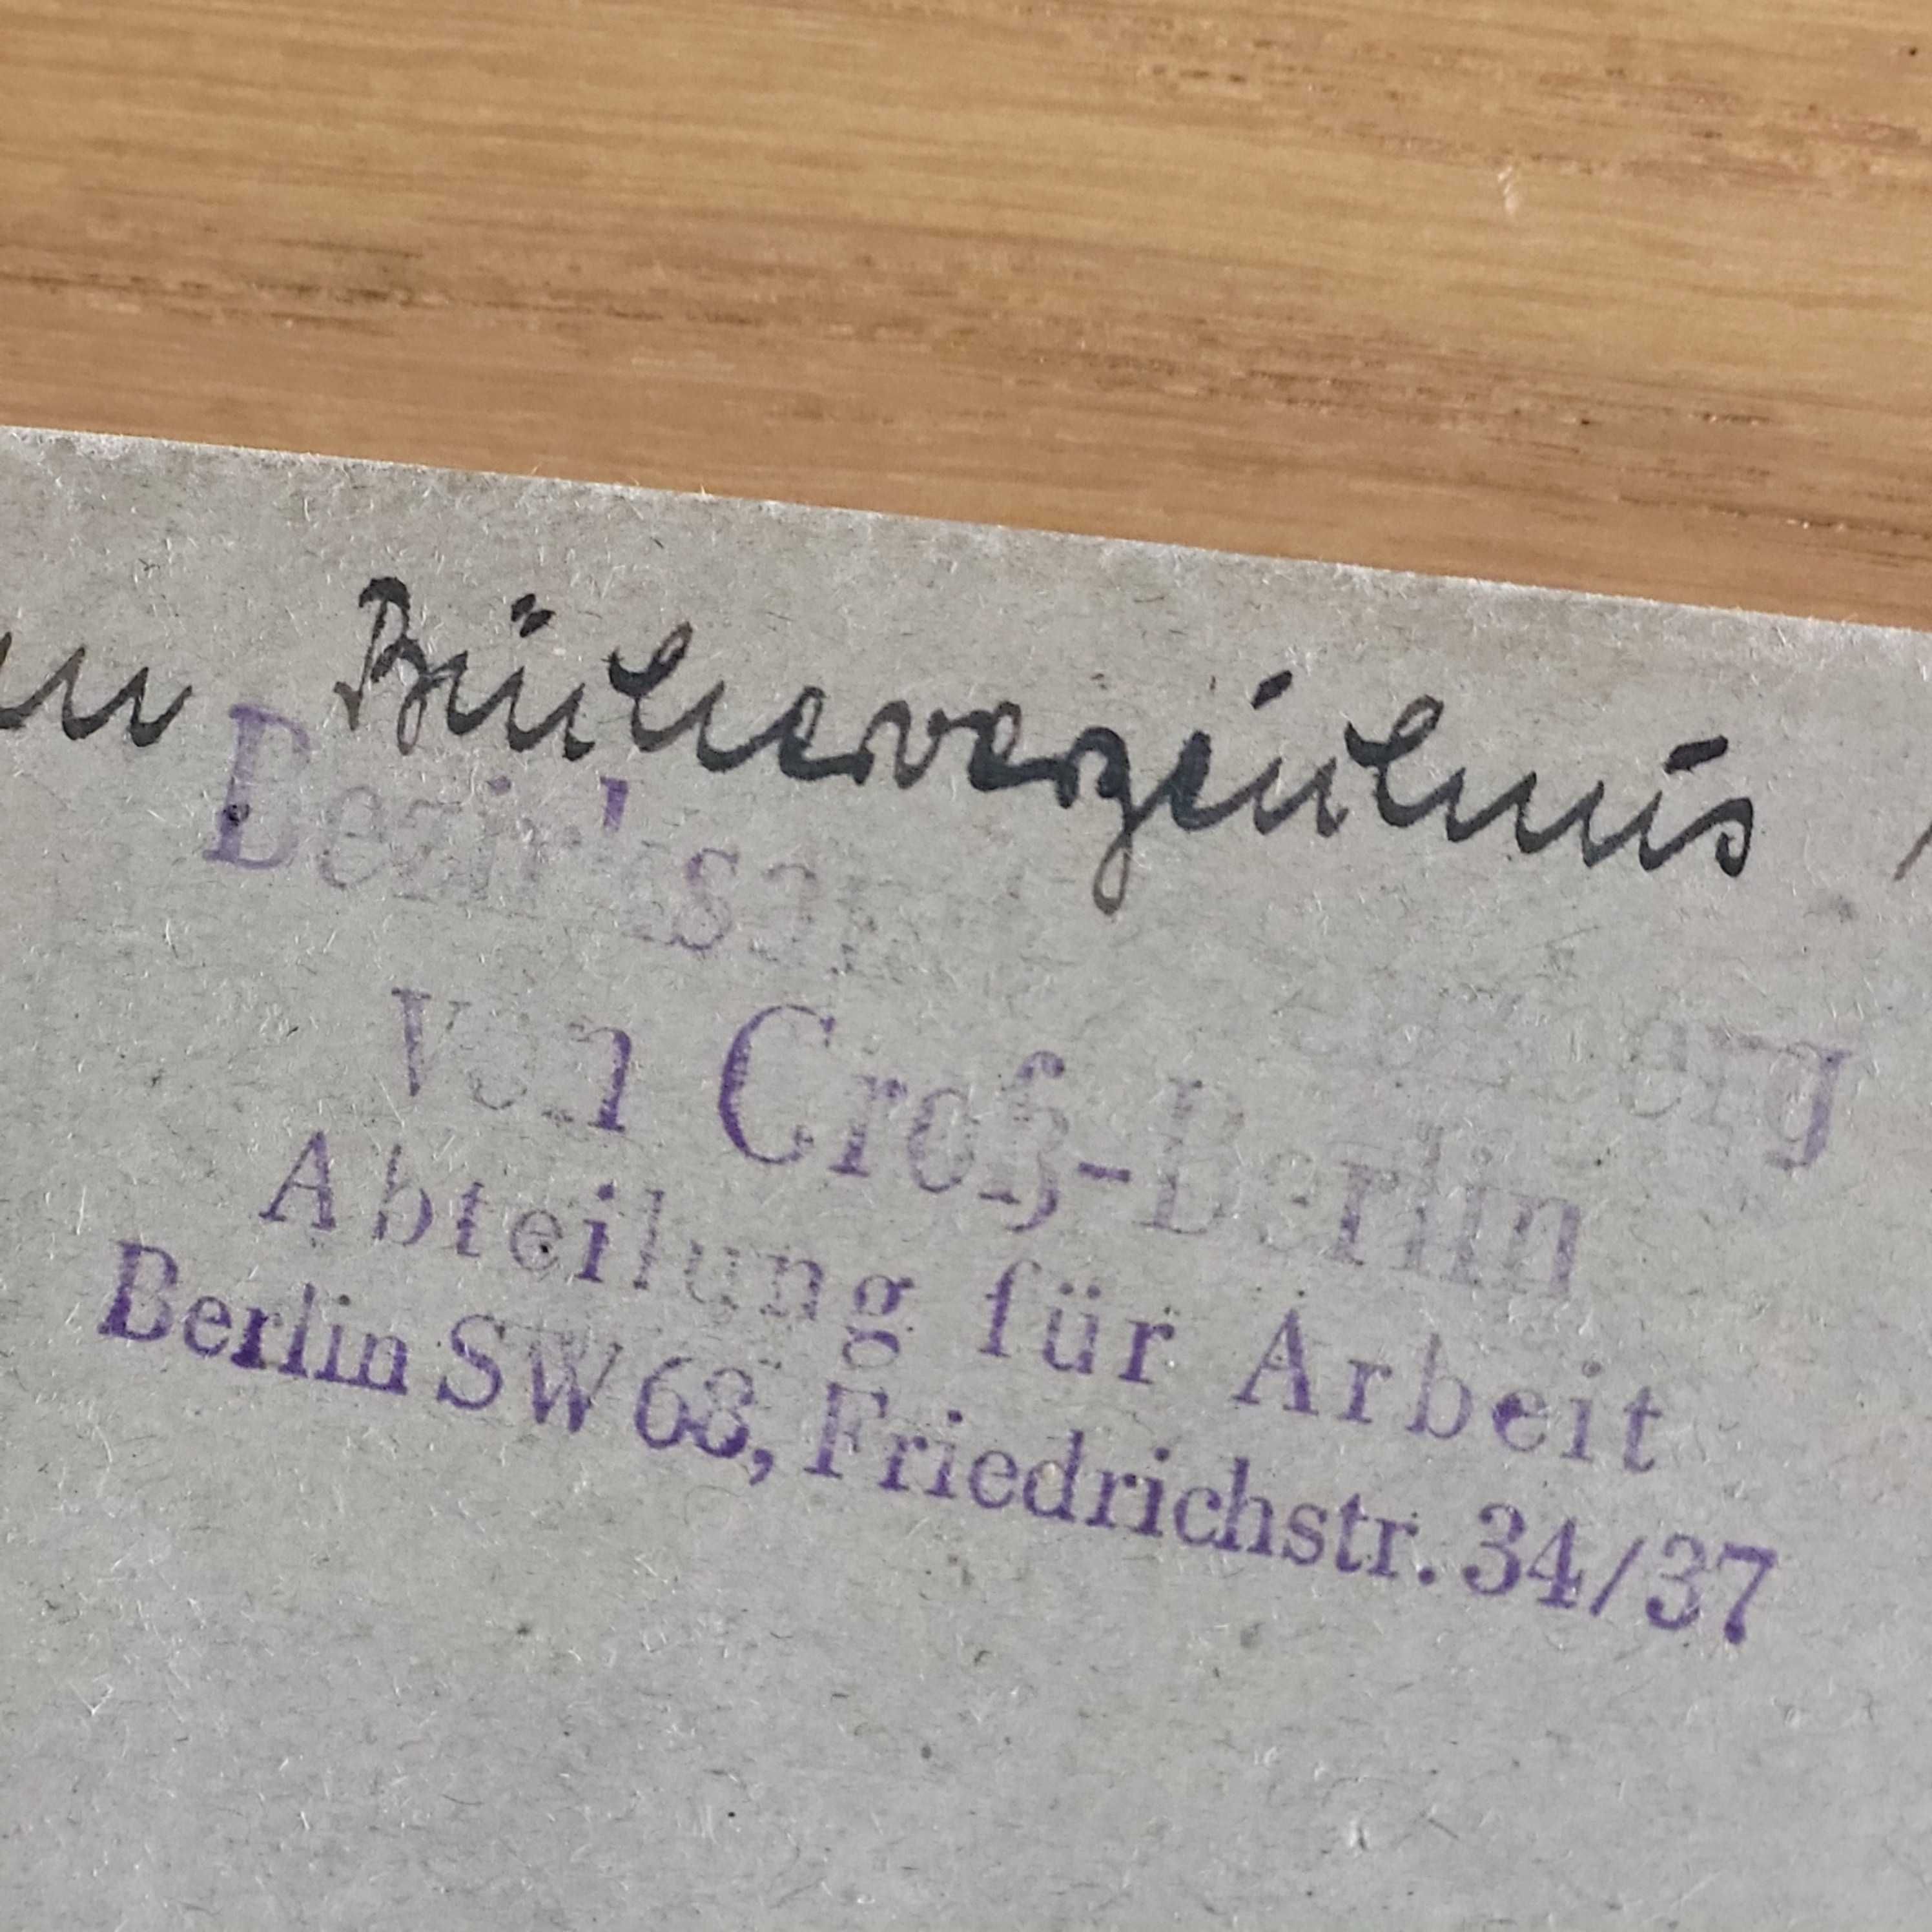 Bücherverzeichnis
Bezirksam
von Groß-Berlin
Abteilung für Arbeit
Berlin SW 68, Friedrichstr. 34/37